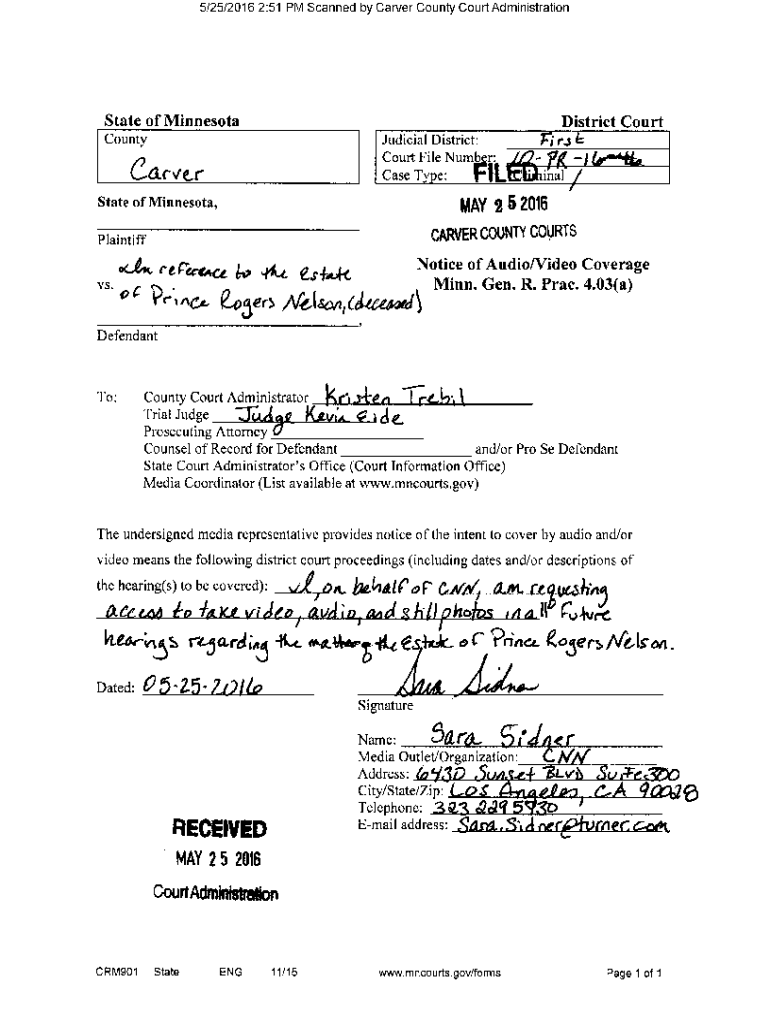 5/25/2016 2:51 PM Scanned by Carver County Court Administration
State of Minnesota District Court
County Judicial District: First
Carver Court File Number: 10-PR-16
Case Type: FILED
State of Minnesota, MAY 25 2016
Plaintiff CARVER COUNTY COURTS
In reference to the estate Notice of Audio/Video Coverage
vs. of Prince Rogers Nelson, (deceased) Minn. Gen. R. Prac. 4.03(a)
Defendant
To: County Court Administrator Kristen Trebil
Trial Judge Judge Kevin Eide
Prosecuting Attorney
Counsel of Record for Defendant and/or Pro Se Defendant
State Court Administrator's Office (Court Information Office)
Media Coordinator (List available at www.mncourts.gov)
The undersigned media representative provides notice of the intent to cover by audio and/or
video means the following district court proceedings (including dates and/or descriptions of
the hearing(s) to be covered): I, on behalf of CNN, am requesting
access to take video, audio, and still photos in all future
hearings regarding the matter of the Estate of Prince Rogers Nelson.
Dated: 05-25-2016 Sara Sidner
Signature
Name: Sara Sidner
Media Outlet/Organization: CNN
Address: 6430 Sunset BLVD Suite 300
City/State/Zip: Los Angeles, CA 90028
Telephone: 323 229 5930
E-mail address: Sara.Sidner@turner.com
RECEIVED
MAY 25 2016
Court Administration
CRM901 State ENG 11/15 www.mncourts.gov/forms Page 1 of 1